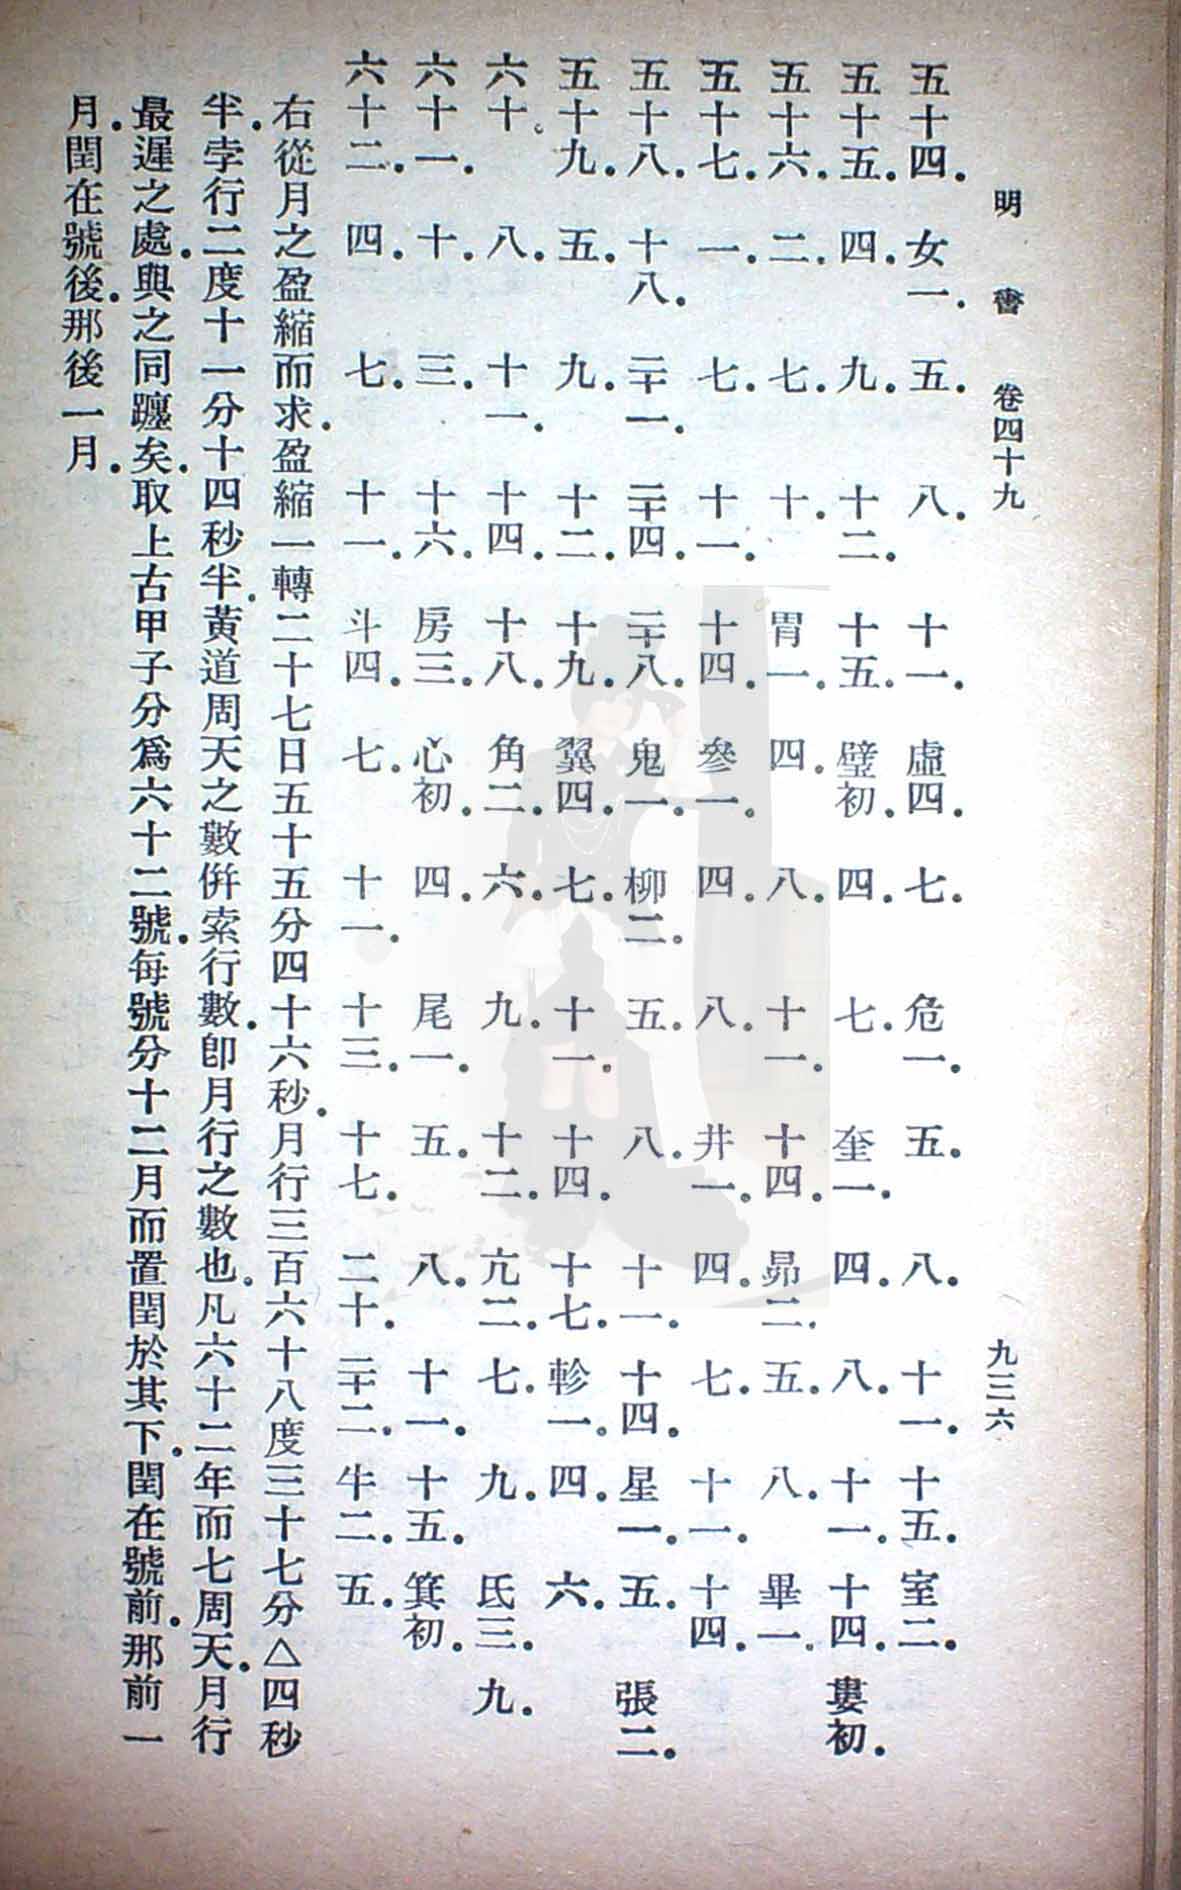 明書 卷四十九 九三六
五十四. 女一. 五. 八. 十一. 虛四. 七. 危一. 五. 八. 十一. 十五. 室二.
五十五. 四. 九. 十二. 十五. 壁初. 四. 七. 奎一. 四. 八. 十一. 十四. 婁初.
五十六. 二. 七. 十. 胃一. 四. 八. 十一. 十四. 昴二. 五. 八. 畢一.
五十七. 一. 七. 十一. 十四. 參一. 四. 八. 井一. 四. 七. 十一. 十四.
五十八. 十八. 二十一. 二十四. 二十八. 鬼一. 柳二. 五. 八. 十一. 十四. 星一. 五. 張二.
五十九. 五. 九. 十二. 十九. 翼四. 七. 十一. 十四. 十七. 軫一. 四. 六.
六十。 八. 十一. 十四. 十八. 角二. 六. 九. 十二. 亢二. 七. 九. 氐三. 九.
六十一. 十. 三. 十六. 房三. 心初. 四. 尾一. 五. 八. 十一. 十五. 箕初.
六十二. 四. 七. 十一. 斗四. 七. 十一. 十三. 十七. 二十. 二十二. 牛二. 五.
右從月之盈縮而求.盈縮一轉二十七日五十五分四十六秒.月行三百六十八度三十七分△四秒
半.孛行二度十一分十四秒半.黃道周天之數倂索行數.卽月行之數也.凡六十二年而七周天.月行
最遲之處.與之同躔矣.取上古甲子分爲六十二號.每號分十二月而置閏於其下.閏在號前.那前一
月.閏在號後.那後一月.